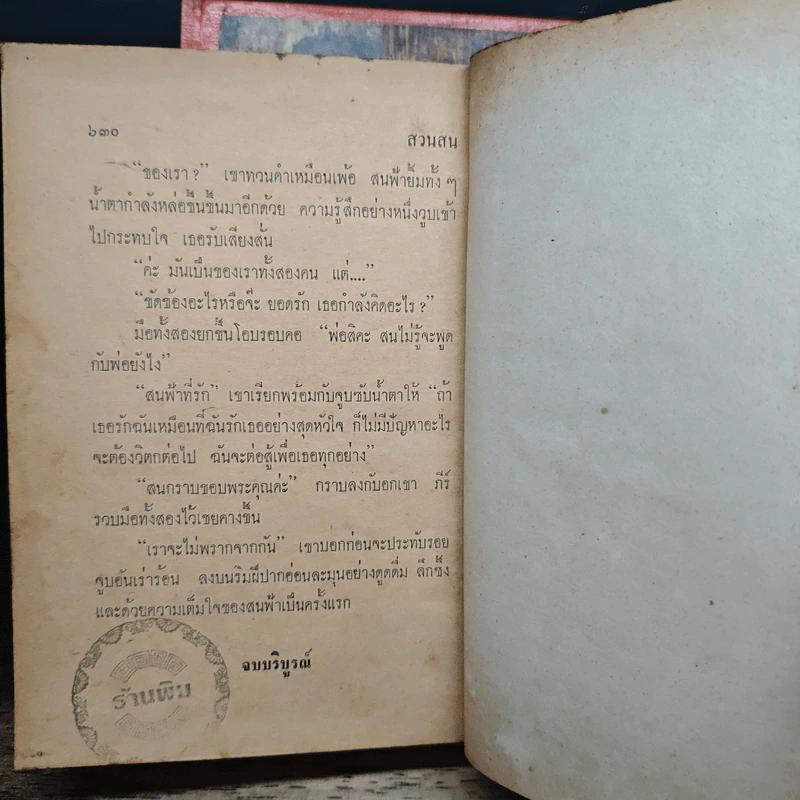 ๖๓๐ สวนสน
“ของเรา ?” เขาทวนคำเหมือนเพ้อ สนฟ้ายิ้มทั้ง ๆ
น้ำตากำลังหล่อขึ้นขึ้นมาอีกด้วย ความรู้สึกอย่างหนึ่งวูบเข้า
ไปกระทบใจ เธอรับเสียงสั่น
“ค่ะ มันเป็นของเราทั้งสองคน แต่....”
“ขัดข้องอะไรหรือจ๊ะ ยอดรัก เธอกำลังคิดอะไร ?”
มือทั้งสองยกขึ้นโอบรอบคอ “พ่อสิคะ สนไม่รู้จะพูด
กับพ่อยังไง”
“สนฟ้าที่รัก” เขาเรียกพร้อมกับจูบซับน้ำตาให้ “ถ้า
เธอรักฉันเหมือนที่ฉันรักเธออย่างสุดหัวใจ ก็ไม่มีปัญหาอะไร
จะต้องวิตกต่อไป ฉันจะต่อสู้เพื่อเธอทุกอย่าง”
“สนกราบขอบพระคุณค่ะ” กราบลงกับอกเขา ภีร์
รวบมือทั้งสองไว้เชยคางขึ้น
“เราจะไม่พรากจากกัน” เขาบอกก่อนจะประทับรอย
จูบอันเร่าร้อน ลงบนริมฝีปากอ่อนละมุนอย่างดูดดื่ม ลึกซึ้ง
และด้วยความเต็มใจของสนฟ้าเป็นครั้งแรก
จบบริบูรณ์
ร้านพิม